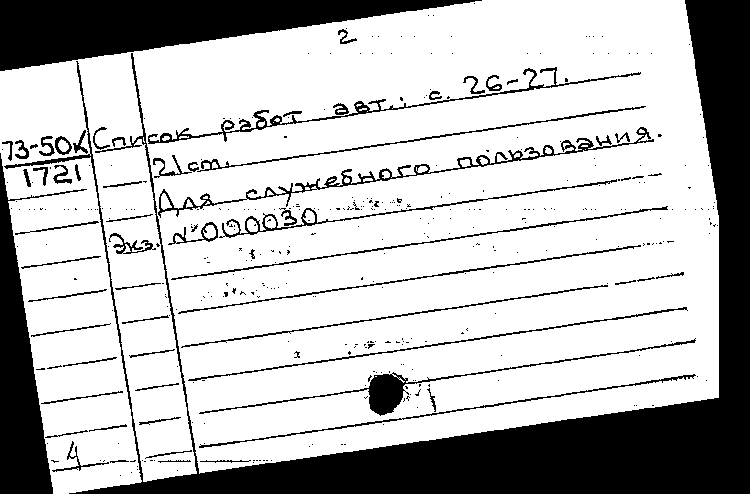 2
73-50к Список работ авт.: с. 26-27.
1721 21 см.
Для служебного пользования.
Экз. №000030
4